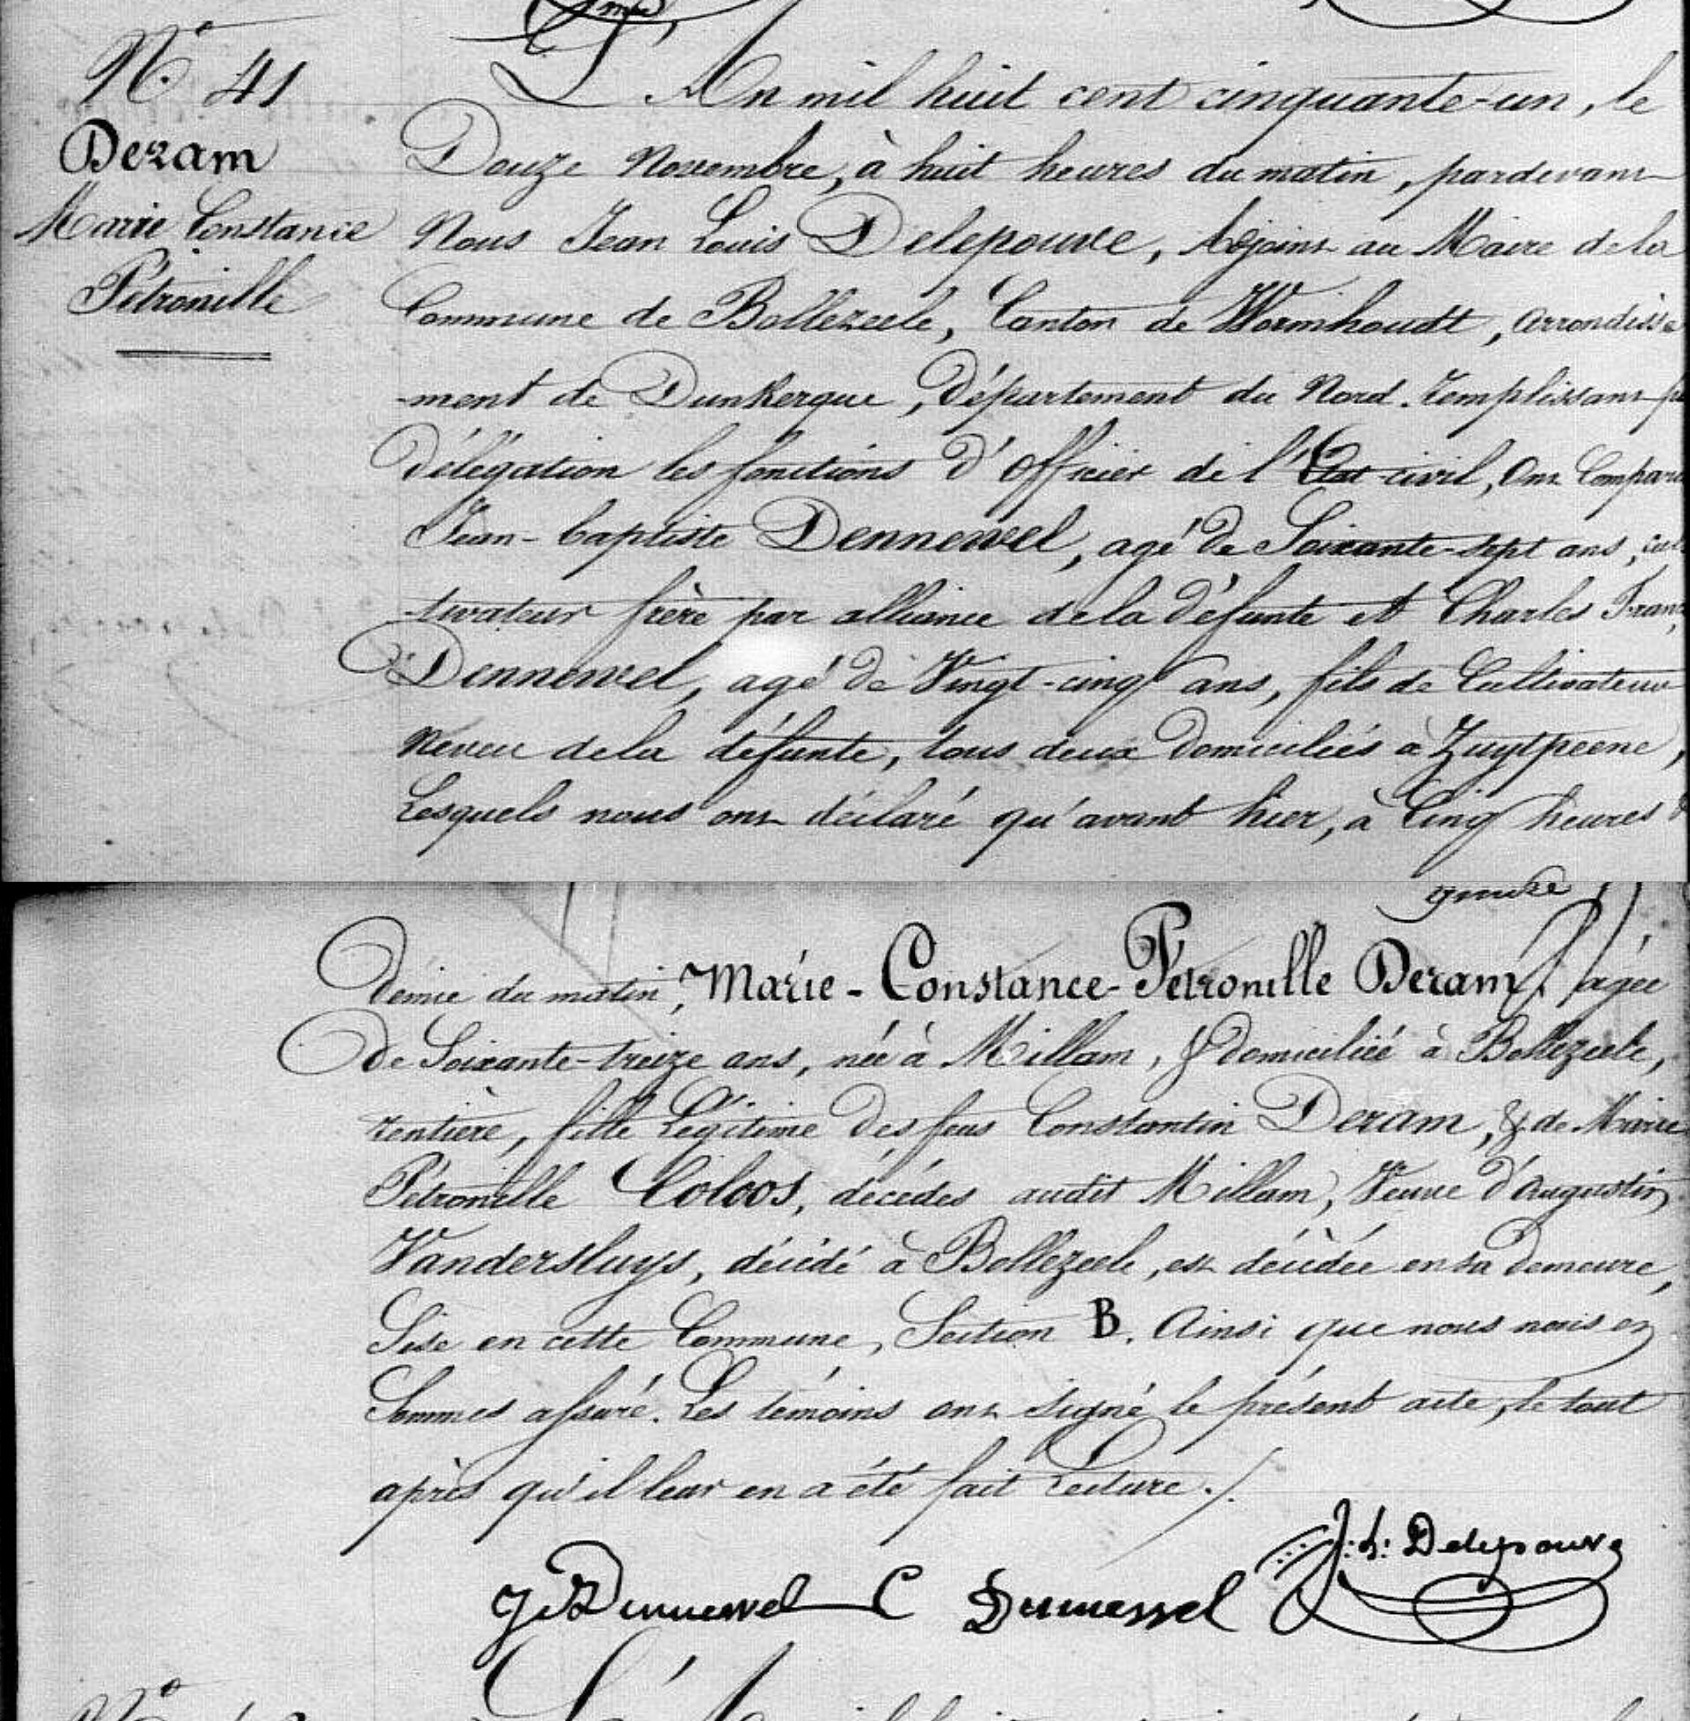 N° 41
Deram
Marie Constance
Pétronille
L'An mil huit cent cinquante-un, le
Douze Novembre, à huit heures du matin, pardevant
Nous Jean Louis Delepouve, Adjoint au Maire de la
Commune de Bollezeele, Canton de Wormhoudt, arrondisse
-ment de Dunkerque, Département du Nord. remplissant
délégation les fonctions d'officier de l'Etat-civil, Ont Comparu
Jean-baptiste Dennewel, agé de Soixante-sept ans, cul
-tivateur frère par alliance de la défunte et Charles Franç
Dennewel, agé de Vingt-cinq ans, fils de Cultivateur
Neveu de la défunte, tous deux Domiciliés à Zuytpeene,
Lesquels nous ont déclaré qu'avant hier, à Cinq heures &
Demie du matin, Marie-Constance-Pétronille Deram, agée
De Soixante-treize ans, née à Millam, & domiciliée à Bollezeele,
rentière, fille Légitime des feus Constantin Deram, & de Marie
Pétronille Coloos, décédés audit Millam, Veuve d'Augustin
Vandersluys, décédé à Bollezeele, est décédée en sa Demeure,
Sise en cette Commune, Section B. Ainsi que nous nous en
Sommes assuré. Les témoins ont signé le présent acte, le tout
après qu'il leur en a été fait Lecture./.
J. L. Delepouve
Dennewel C Dennewel
N°